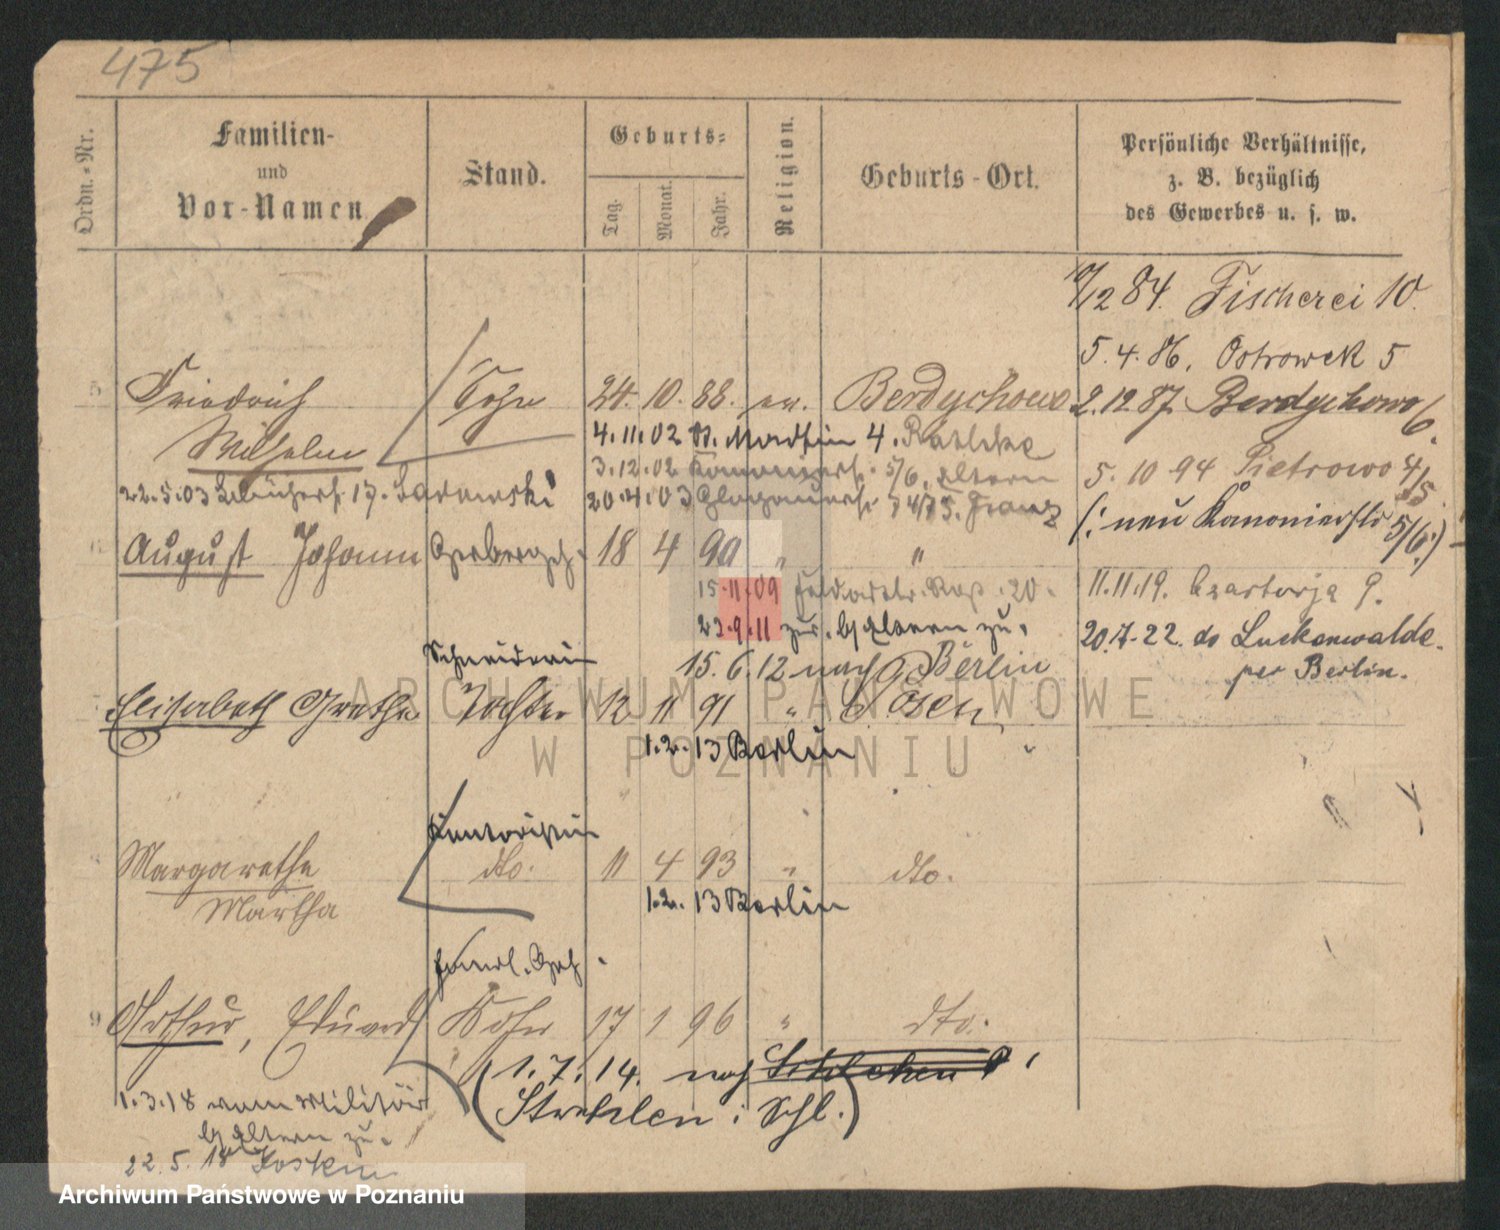 475
Ordn.-Nr.
Familien-
und
Vor-Namen.
Stand.
Geburts-
Tag.
Monat.
Jahr.
Religion.
Geburts-Ort.
Persönliche Verhältnisse,
z. B. bezüglich
des Gewerbes u. s. w.
12 84. Fischerei 10.
5. 4. 86. Ostrowek 5
Friedrich Sohn 24. 10. 88. ev. Berdychowo 2. 12. 87. Berdychowo 6.
Wilhelm
4. 11. 02 St. Martin 4.
3. 12. 02 Kanonierst. 5/6. Eltern
5. 10 94 Pietrowo 4/5
22. 5. 03 17.
20. 4. 03 74/75. Franz
(: neu Kanonierstr 5/6 :)
August Johann 18 4 90 " "
15. 11. 09 20.
11. 11. 19. Czartorja 9.
23. 9. 11 zur. b/ Eltern zu.
20. 7. 22. do Luckenwalde
per Berlin.
Schneiderin
15. 6. 12 nach Berlin
Elisabeth Grethe Tochter 12 11 91 " Posen
1. 2. 13 Berlin
Kontoristin
Margarethe dto. 11 4 93 " dto.
Martha
1. 2. 13 Berlin
9 Arthur, Eduard Sohn 17 1 96 " dto.
(1. 7. 14. nach
Strehlen i. Schl.)
1. 3. 18 vom Militär
b/ Eltern zu.
22. 5. 18
ARCHIWUM PAŃSTWOWE
W POZNANIU
Archiwum Państwowe w Poznaniu